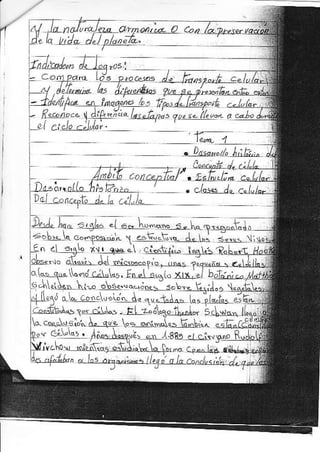 y la naturaleza armonica O con la preservacion
de la vida del planeta.
Indicadores de Logros!
- Compara los procesos de transporte celular
y determina las diferencias que se presentan entre estos
- Identifica en Imagenes los tipos de transporte celular
- Reconoce y diferencia las etapas que se llevan a cabo durante
el ciclo celular.
Tema 1
• Desarrollo histórico del
Concepto de célula
Ambito conceptual • Estructura Celular
Desarrollo histórico • clases de Celular
Del concepto de la célula
Desde han siglos el ser humano se ha preguntado
sobre la composición y estructura de los seres vivos
En el siglo XVII el científico Inglés Robert Hook
observo através del microscopio, unas pequeñas celdillas
a las que llamó células. En el siglo XIX, el botánico Matthi
Schleiden hizo observaciones sobre tejidos vegetales
y llegó a la conclusión de que todas las plantas están
constituidas por células. El zoólogo Theodor Schwan llegó a
la conclusión de que los animales también están Consti
por células. Años después en 1.889 el cirujano Rudolf
Virchow mientras estudiaba la forma como las
des afectaban a los organismos llegó a la conclusión de que